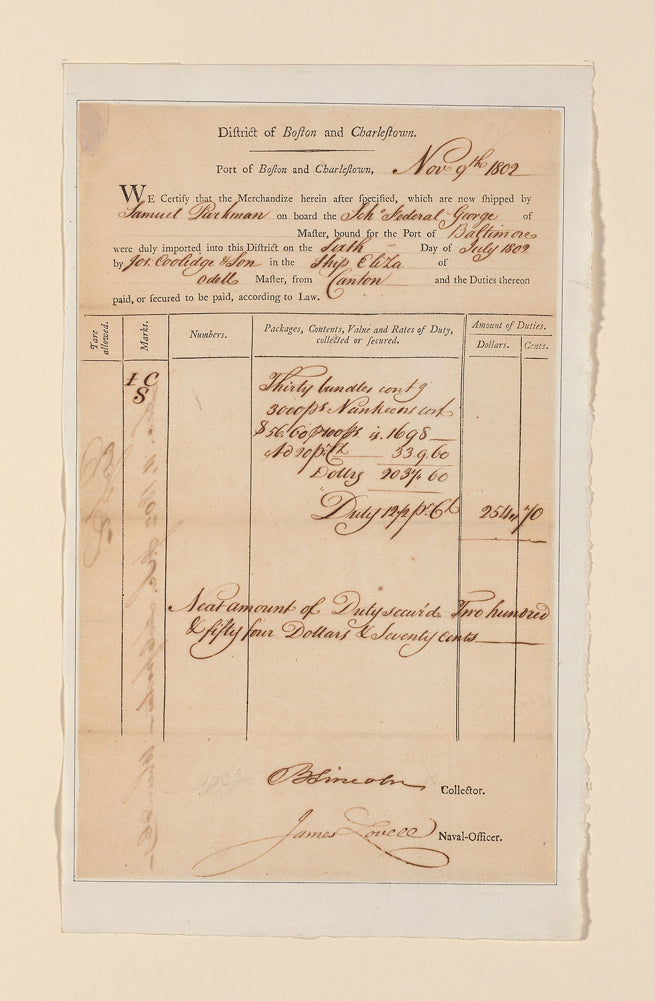 District of Boston and Charlestown.
Port of Boston and Charlestown, Nov 9th 1802
WE Certify that the Merchandize herein after specified, which are now shipped by
Samuel Parkman on board the Sch Federal George of
Master, bound for the Port of Baltimore
were duly imported into this District on the Sixth Day of July 1802
by Jos. Coolidge & Son in the Ship Eliza of
Odell Master, from Canton and the Duties thereon
paid, or secured to be paid, according to Law.
Tare allowed. Marks. Numbers. Packages, Contents, Value and Rates of Duty, collected or secured. Amount of Duties.
Dollars. Cents.
I C
S
Thirty bundles contg
3000 ps Nankeens cost
$56.60 100 ps is 1698
Ad 20 pr Ct 339.60
Dollrs 2037 60
Duty 12 1/2 pr Ct 254 70
Neat amount of Duty secur'd Two hundred
& fifty four Dollars & Seventy Cents
B Lincoln Collector.
James Lovell Naval-Officer.